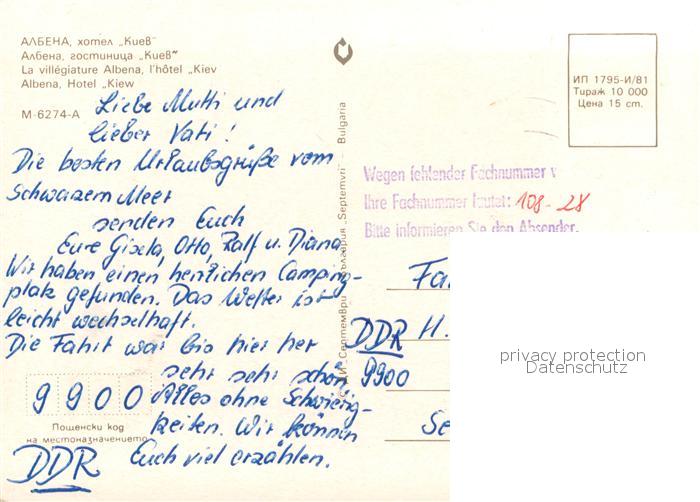 АЛБЕНА, хотел „Киев“
Албена, гостиница „Киев“
La villégiature Albena, l'hôtel „Kiev
Albena, Hotel „Kiew
М-6274-А
Liebe Mutti und
lieber Vati!
Die besten Urlaubsgrüße vom
Schwarzem Meer
senden Euch
Eure Gisela, Otto, Ralf u. Diana
Wir haben einen herrlichen Camping-
platz gefunden. Das Wetter ist
leicht wechselhaft.
Die Fahrt war bis hier her
sehr sehr schön
Alles ohne Schwierig-
keiten. Wir können
Euch viel erzählen.
9900
Пощенски код
на местоназначението
DDR
Септември България „Septemvri“ – Bulgaria
ИП 1795-И/81
Тираж 10 000
Цена 15 cm.
Wegen fehlender Fachnummer v
Ihre Fachnummer lautet: 108-28
Bitte informieren Sie den Absender.
Fa
DDR H.
9900
Se
privacy protection
Datenschutz